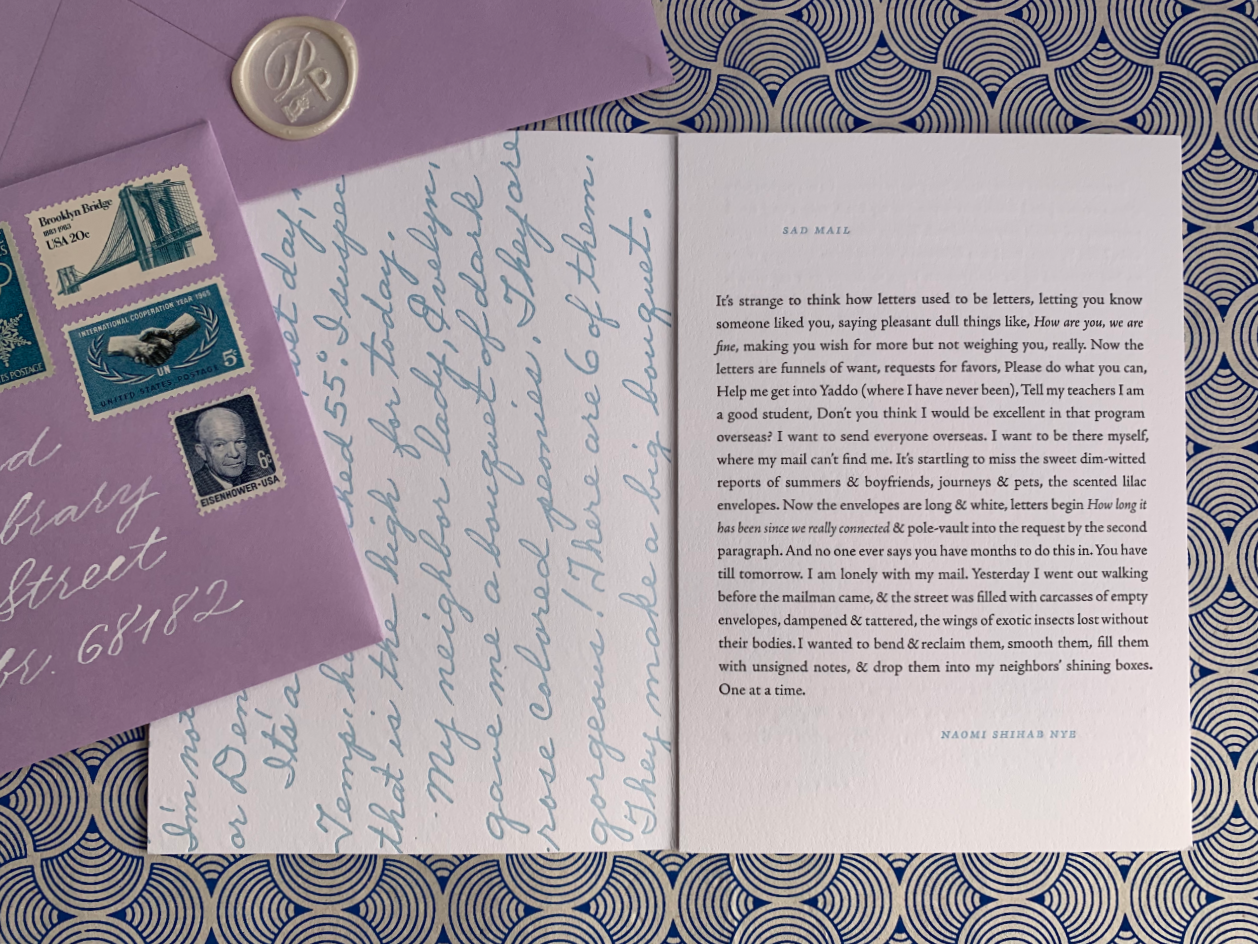 Brooklyn Bridge
1883-1983
USA 20c
INTERNATIONAL COOPERATION YEAR 1965
UN
5¢
UNITED STATES POSTAGE
6¢
EISENHOWER·USA
POSTAGE
Street
68182
I'm not
or Dem
It's a
day,
Temp. 55°. I suspec
that is the high for today.
My neighbor lady, Evelyn,
gave me a bouquet of dark
rose colored peonies. They are
gorgeous! There are 6 of them.
They make a big bouquet.
SAD MAIL
It's strange to think how letters used to be letters, letting you know
someone liked you, saying pleasant dull things like, How are you, we are
fine, making you wish for more but not weighing you, really. Now the
letters are funnels of want, requests for favors, Please do what you can,
Help me get into Yaddo (where I have never been), Tell my teachers I am
a good student, Don't you think I would be excellent in that program
overseas? I want to send everyone overseas. I want to be there myself,
where my mail can't find me. It's startling to miss the sweet dim-witted
reports of summers & boyfriends, journeys & pets, the scented lilac
envelopes. Now the envelopes are long & white, letters begin How long it
has been since we really connected & pole-vault into the request by the second
paragraph. And no one ever says you have months to do this in. You have
till tomorrow. I am lonely with my mail. Yesterday I went out walking
before the mailman came, & the street was filled with carcasses of empty
envelopes, dampened & tattered, the wings of exotic insects lost without
their bodies. I wanted to bend & reclaim them, smooth them, fill them
with unsigned notes, & drop them into my neighbors' shining boxes.
One at a time.
NAOMI SHIHAB NYE